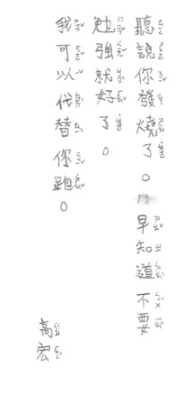 聽說你發燒了。早知道不要
勉強就好了。
我可以代替你跑。
高宏